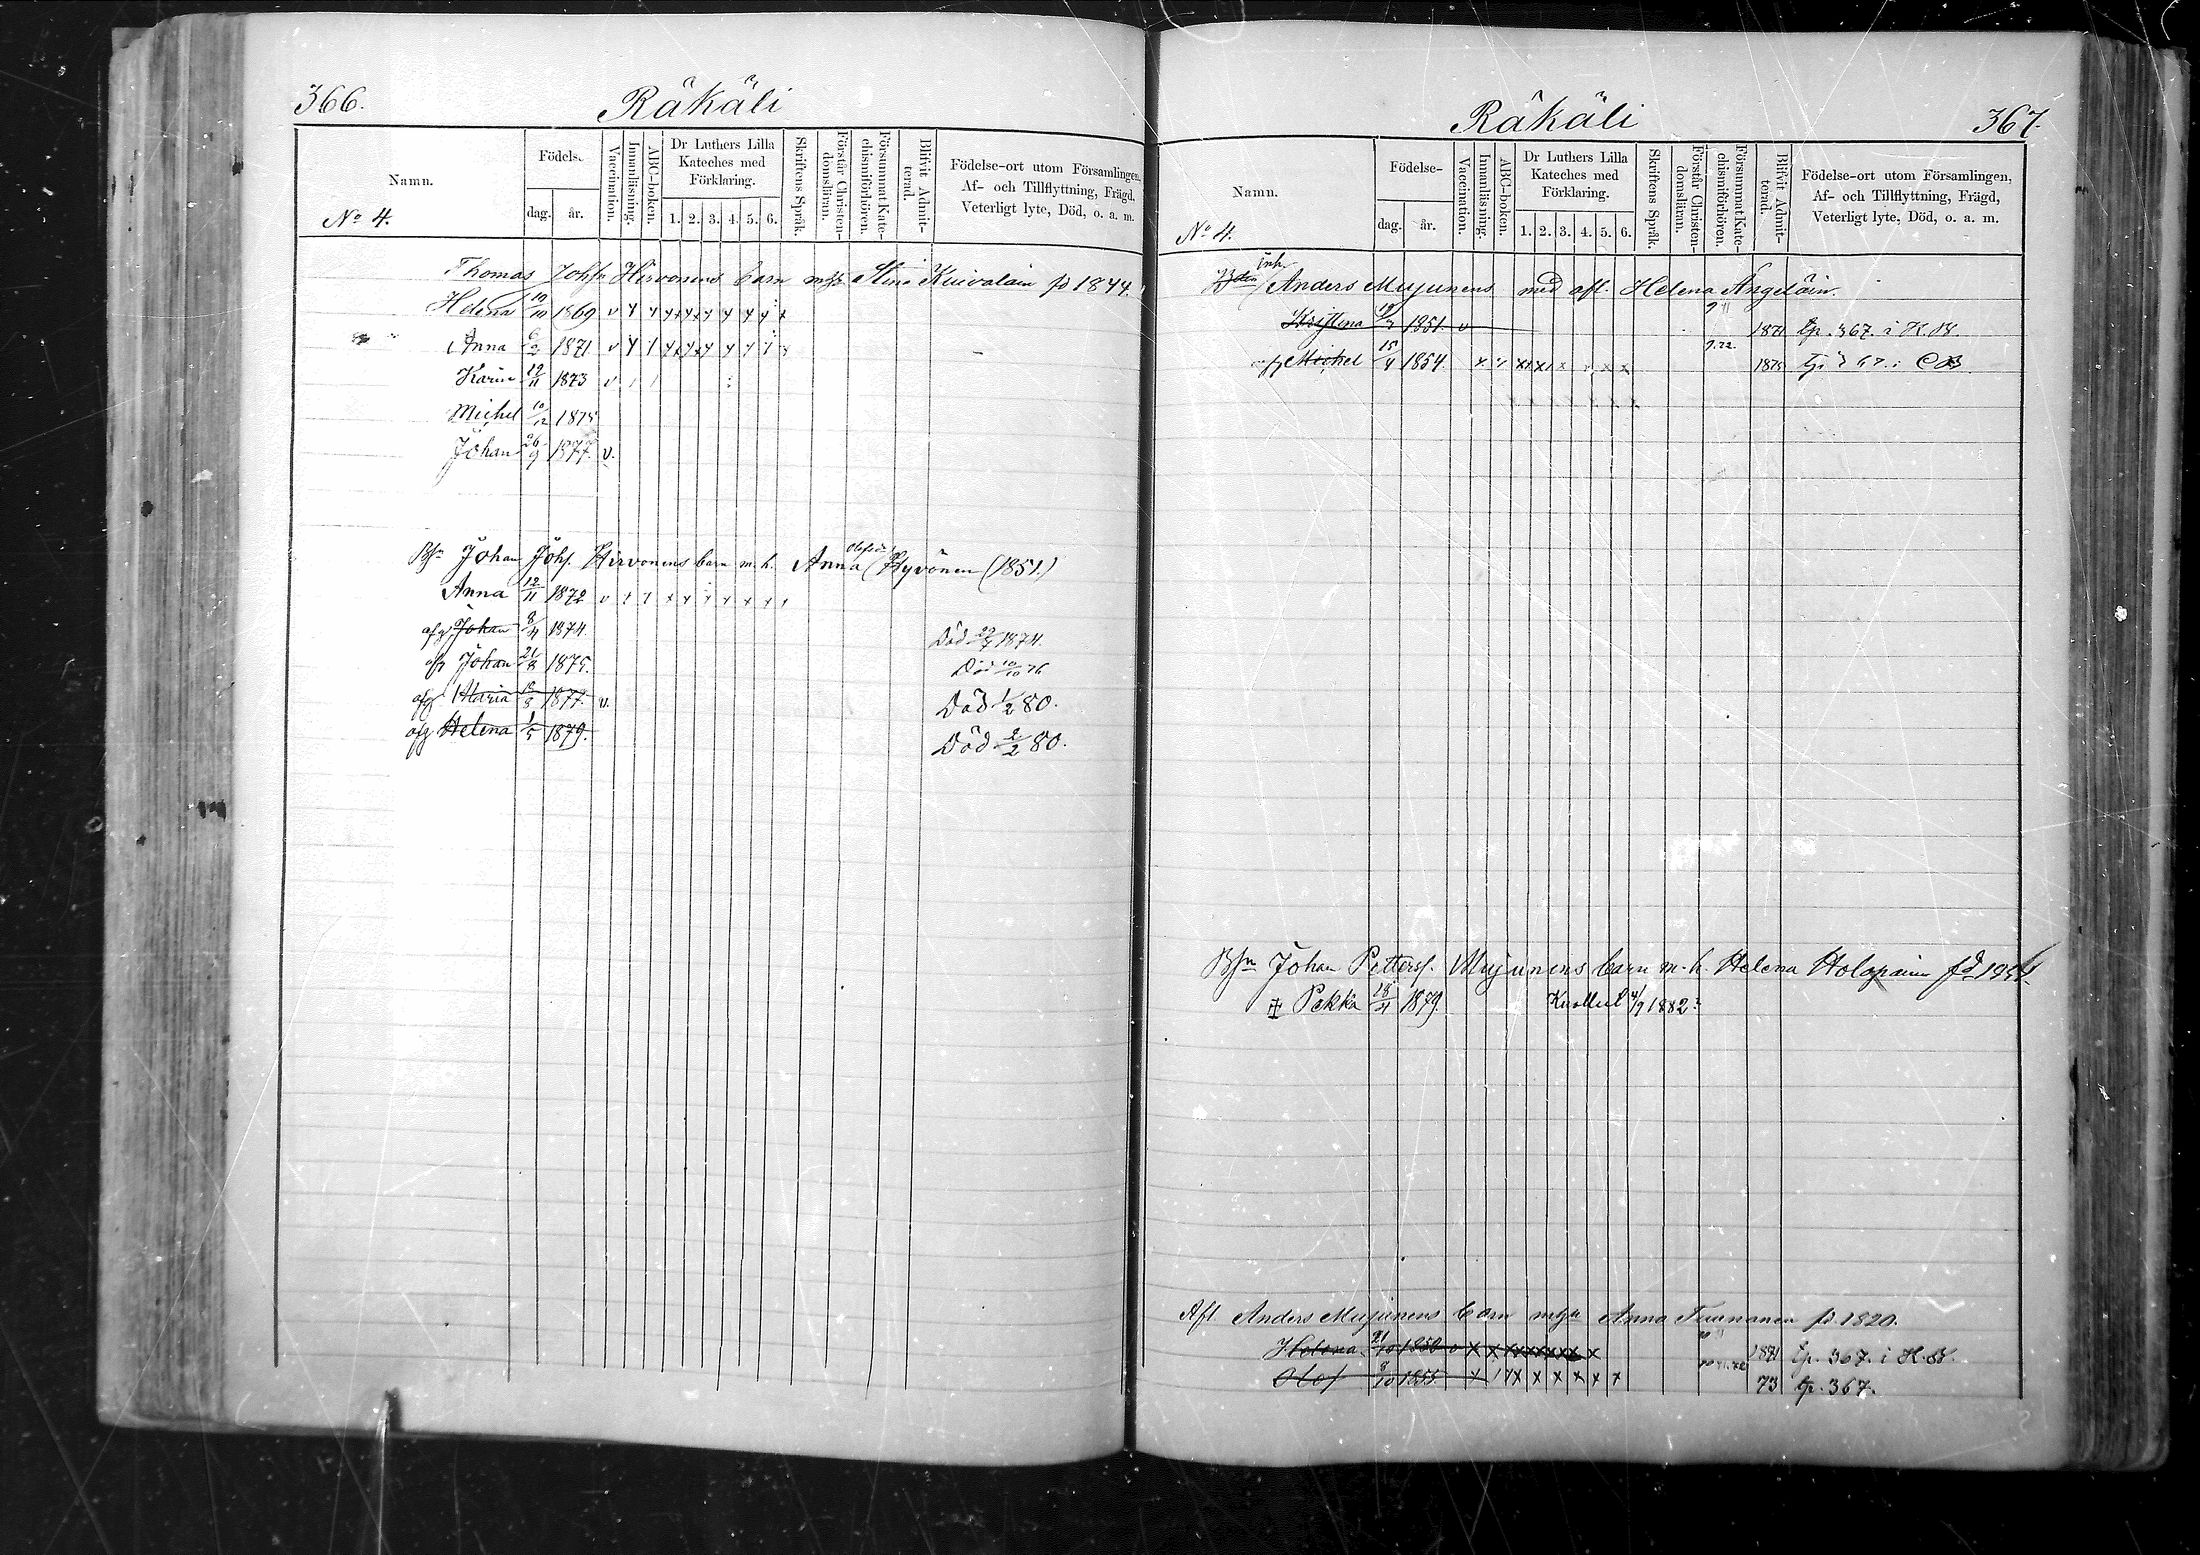 366.
Räkäli
Namn.
No 4.
Födelse
dag.
år.
Vaccination.
Innanläsning.
ABC-boken.
Dr Luthers Lilla
Kateches med
Förklaring.
1. 2. 3. 4. 5. 6.
Skriftens Språk.
Förstår Christen-
domsläran.
Försummat Kate-
chismiförhören.
Blifvit Admit-
terad.
Födelse-ort utom Församlingen,
Af- och Tillflyttning, Frägd,
Veterligt lyte, Död, o. a. m.
Thomas Johsn Hirvonens barn Stina Kuivalain 1844.
Helena 10/10 1869 v
Anna 6/2 1871 v
Karin 12/11 1873 v
Michel 10/12 1875
Johan 26/9 1877. v.
Bsn Johan Johs. Hirvonens barn m. h. Anna Olofsdr Hyvönen (1851.)
Anna 12/11 1872 v
afg Johan 8/4 1874. Död 1874.
afg Johan 21/8 1875. Död 10/10 76
afg Maria 1877. v. Död 1/2 80.
afg Helena 1/5 1879. Död 2/2 80.
Räkäli
367.
Namn.
No 4.
Födelse-
dag.
år.
Vaccination.
Innanläsning.
ABC-boken.
Dr Luthers Lilla
Kateches med
Förklaring.
1. 2. 3. 4. 5. 6.
Skriftens Språk.
Förstår Christen-
domsläran.
Försummat Kate-
chismiförhören.
Blifvit Admit-
terad.
Födelse-ort utom Församlingen,
Af- och Tillflyttning, Frägd,
Veterligt lyte, Död, o. a. m.
inh. Anders Mujunens med afl. Helena
Kristina 1851. v 1871 tp. 367. i K.B.
Michel 15/4 1854. x x x x x 1875
Bsn Johan Petterss. Mujunens barn m. h. Helena Holopainen
Pekka 18/4 1879. Kuollut 4/9 1882.
Afl Anders Mujunens barn Anna Turunanen 1820.
Helena 21/10 1850 v x x x x x x x x 1871 tp. 367. i K.B.
Olof 8/10 1855. x x x x x x x 73 tp. 367.